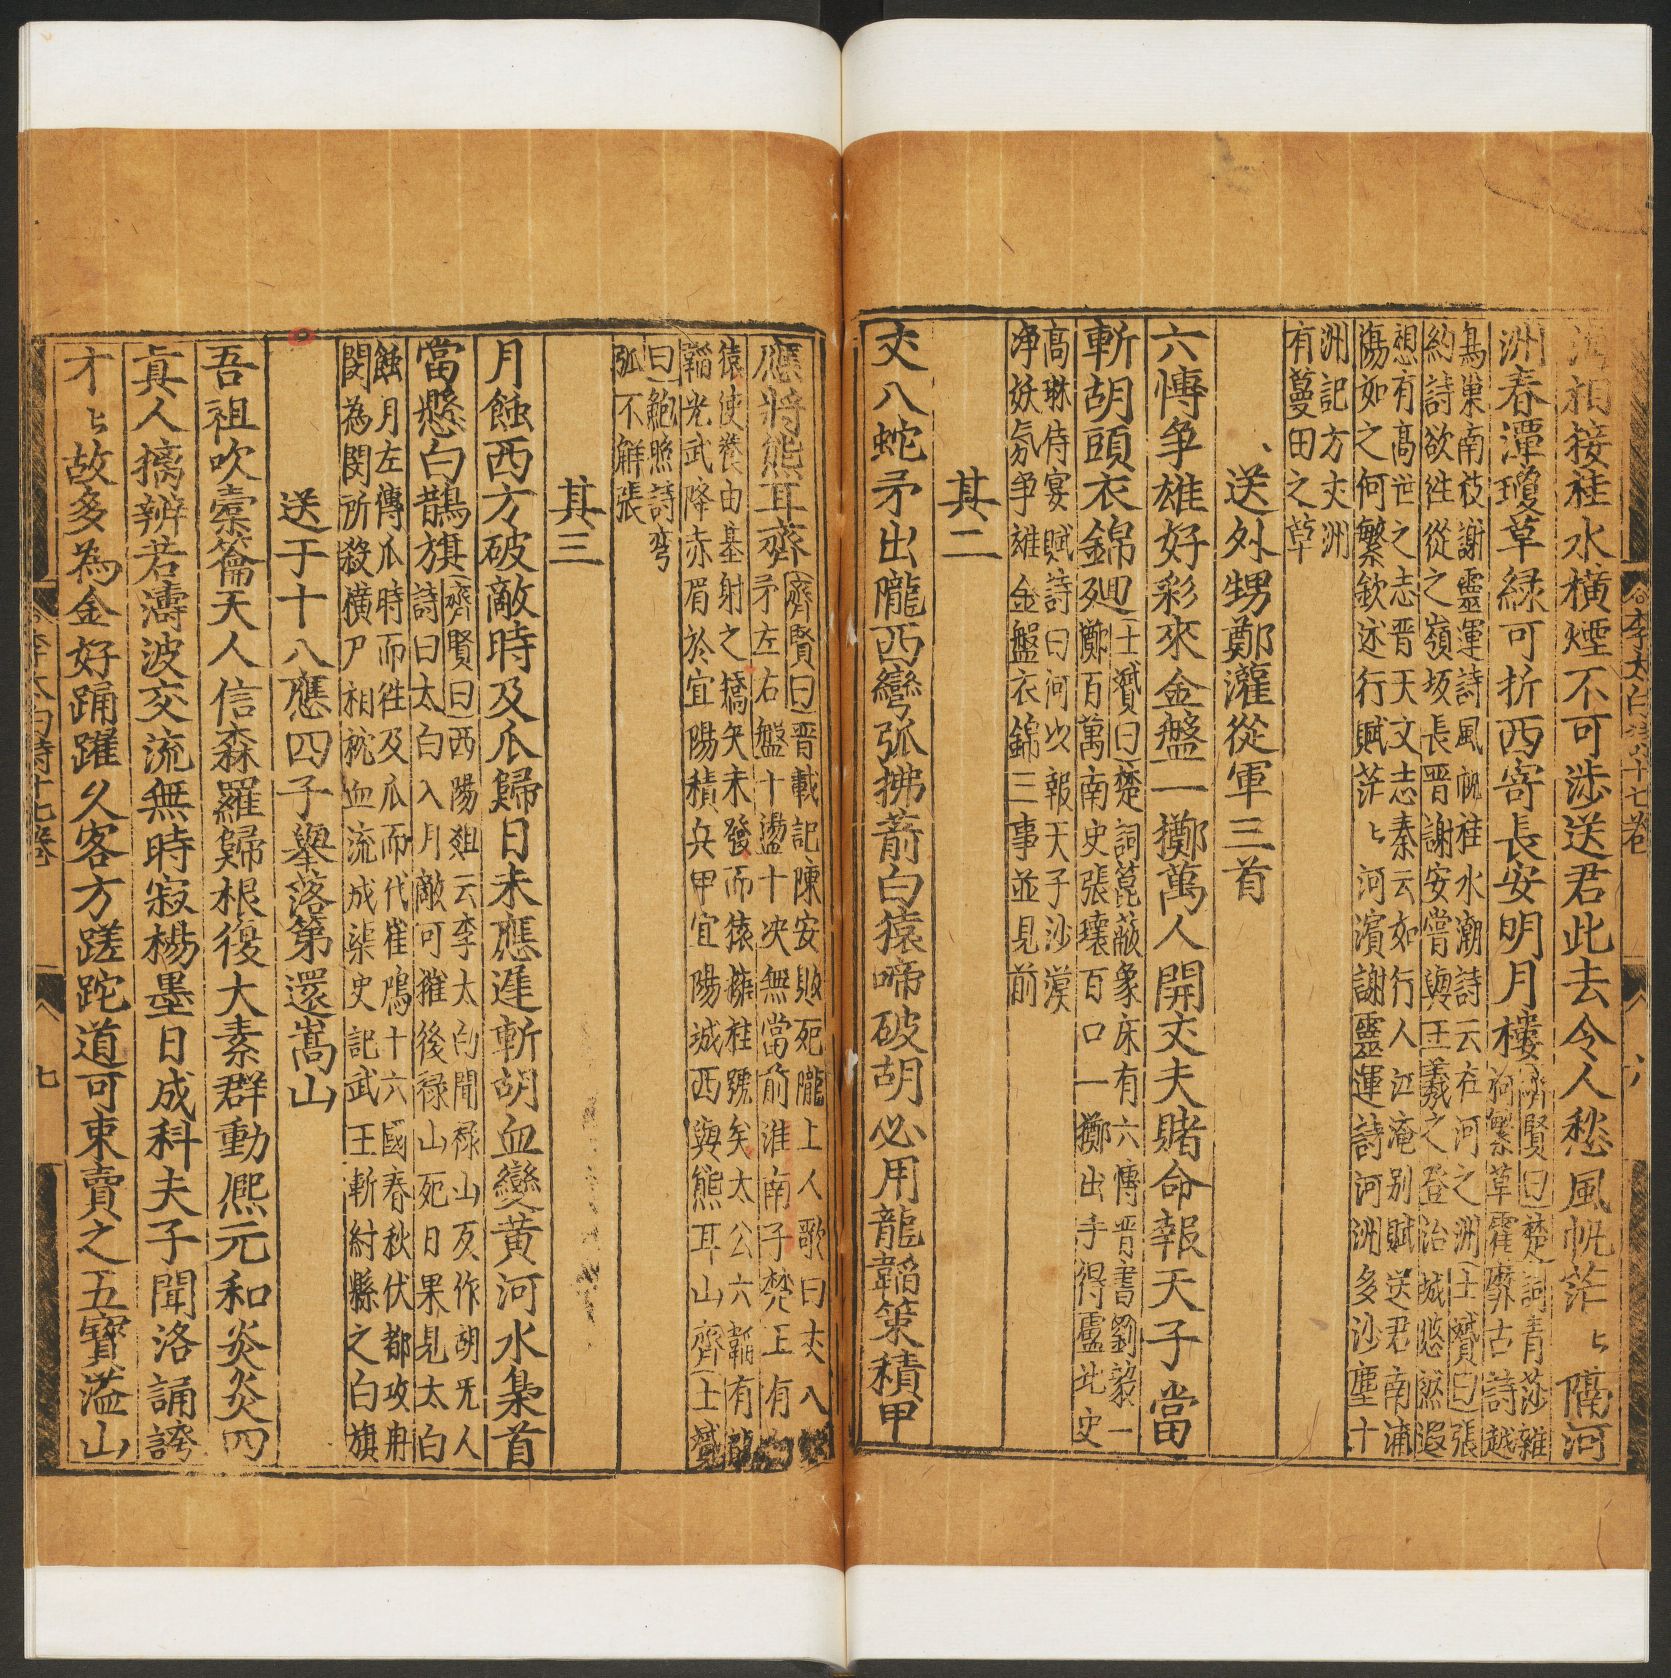 海相接桂水橫煙不可涉送君此去令人愁風帆茫〻隔河
洲春潭瓊草緑可折西寄長安明月樓
齊賢曰楚詞青莎雜
樹繁草霍靡古詩越
鳥巢南枝謝靈運詩風帆桂水潮詩云在河之洲士贇曰張
約詩欲徃從之嶺坂長晋謝安嘗與王羲之登冶城悠然遐
想有髙世之志晋天文志秦云如行人江淹别賦送君南浦
傷如之何繁欽述行賦茫〻河濱謝靈運詩河洲多沙塵十
洲記方丈洲
有蔓田之草
送外甥鄭灌從軍三首
六愽争雄好彩來金盤一擲萬人開丈夫賭命報天子當
斬胡頭衣錦廻
士贇曰楚詞箟蔽象床有六愽晋書劉毅一
擲百萬南史張瓌百口一擲出手得盧北史
髙琳侍宴賦詩曰何以報天子沙漠
净妖氛争雄金盤衣錦三事並見前
其二
丈八蛇矛出隴西彎弧拂箭白猿啼破胡必用龍韜策積甲
應將熊耳齊
齊賢曰晋載記陳安敗死隴上人歌曰丈八蛇
矛左右盤十盪十决無當前淮南子楚王有
猿使養由基射之撟矢未發而猿擁柱號矣太公六韜有龍
韜光武降赤眉於宜陽積兵甲宜陽城西與熊耳山齊士贇
曰鮑照詩彎
弧不解張
其三
月蝕西方破敵時及瓜歸日未應遲斬胡血變黄河水梟首
當懸白鵲旗
齊賢曰西陽爼云李太白聞禄山反作胡无人
詩曰太白入月敵可摧後禄山死日果見太白
蝕月左傳瓜時而徃及瓜而代崔鴻十六國春秋伏都攻冉
閔為閔所殺横尸相枕血流成渠史記武王斬紂縣之白旗
送于十八應四子舉落第還嵩山
吾祖吹橐籥天人信森羅歸根復大素群動熈元和炎炎四
真人摛辨若濤波交流無時寂楊墨日成科夫子聞洛誦誇
才〻故多為金好踊躍久客方蹉跎道可束賣之五寳溢山
李太白詩十七卷
七